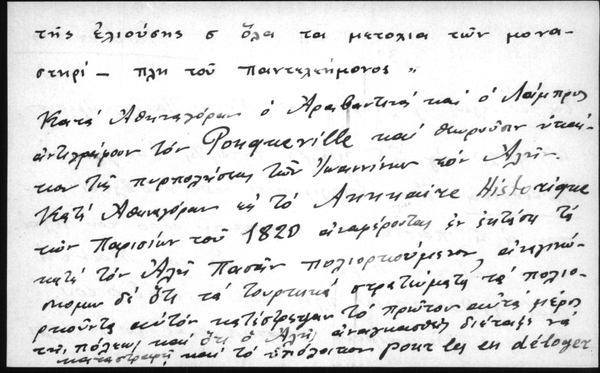 τῆς ἐλιούσης σ ὅλα τα μετοχια τῶν μονα-
στηρί — πλη τοῦ Παντελεήμονος "
Κατά Ἀθηναγόραν ὁ Ἀραβαντινός καί ὁ Λάμπρος
ἀντιγράφουν τόν Pouqueville καί θεωροῦσιν
τῆς πυρπολήσεως τῶν Ἰωαννίνων τόν Ἀλῆν.
Κατά Ἀθηναγόραν εἰς τό Annuaire Historique
τῶν Παρισίων τοῦ 1820 ἀναφέροντας ἐν ἐκτάσει τά
κατά τόν Ἀλῆ Πασᾶν πολιορκούμενον, ἀναγινώ-
σκομεν δέ ὅτι τά τουρκικά στρατεύματα τά πολιο-
ρκοῦντα αὐτόν κατέστρεψαν τό πρῶτον μέρος
τῆς πόλεως καί ὅτι ὁ Ἀλῆς ἀναγκασθείς διέταξε νά
καταστραφῇ καί τό ὑπόλοιπον pour les en déloger